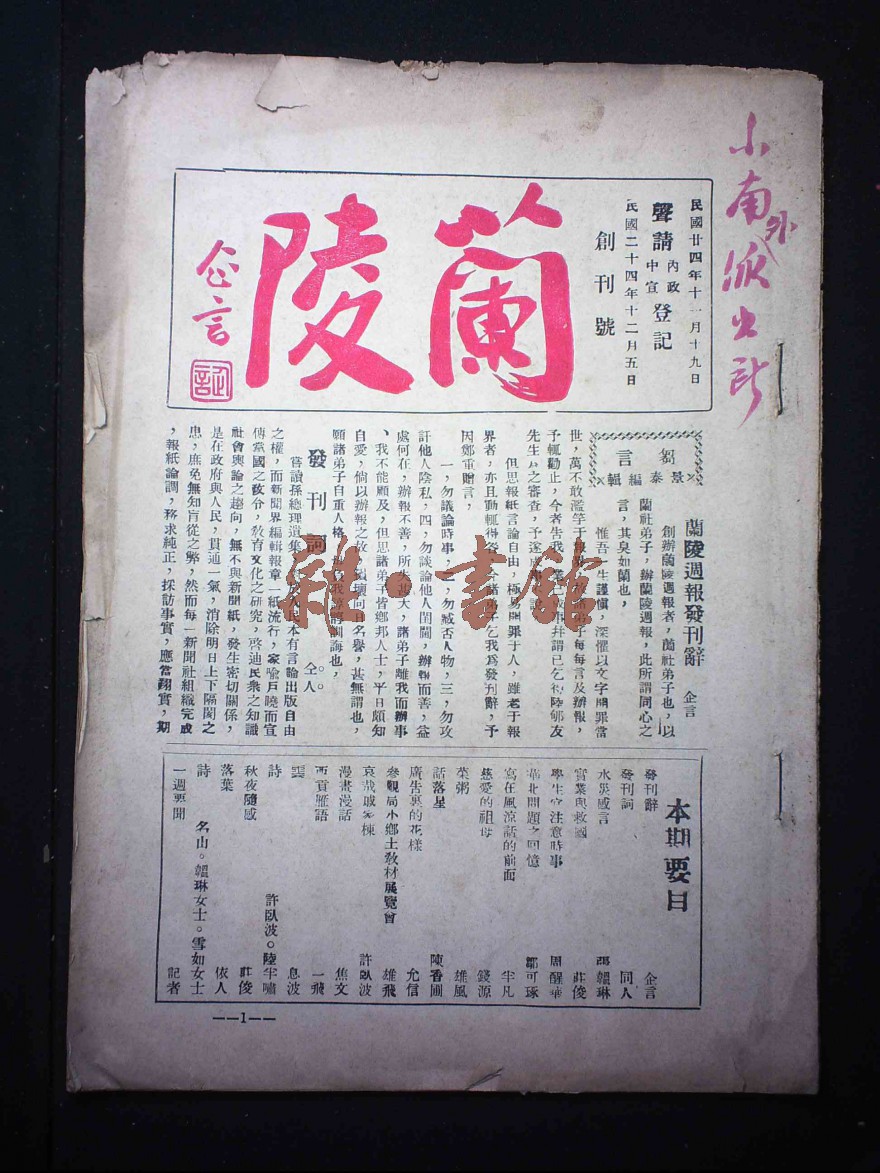 小南外派出所
民國廿四年十一月十九日
聲請內政中宣登記
民國二十四年十二月五日
創刊號
蘭陵
企言
芻言
景泰編輯
蘭陵週報發刊辭
企言
創辦蘭陵週報者，蘭社弟子也，以
蘭社弟子，辦蘭陵週報，此所謂同心之
言，其臭如蘭也，
惟吾一生謹愼，深懼以文字開罪當
世，萬不敢濫竽于報界，故諸弟子每每言及辦報，
予輒勸止，今者告我
先生之審查，予遂成
但思報紙言論自由，極易開罪于人，雖老于報
界者，亦且動輒得咎，今諸弟子乞我爲發刊辭，予
因鄭重贈言，
一，勿議論時事，二，勿臧否人物，三，勿攻
訐他人陰私，四，勿談論他人閨閫，辦報而善，益
處何在，辦報不善，所失甚大，諸弟子離我而辦事
、我不能顧及，但思諸弟子皆鄉邦人士，平日頗知
自愛，倘以辦報之故，損壞向日名譽，甚無謂也，
願諸弟子自重人格，
發刊詞
仝人
嘗讀孫總理遺集，人民本有言論出版自由
之權，而新聞界編輯報章一紙流行，家喩戶曉而宣
傳黨國之政令，敎育文化之硏究，啓迪民衆之知識
社會輿論之趨向，無不與新聞紙，發生密切關係，
是在政府與人民，貫通一氣，消除明日上下隔閡之
患，庶免無知盲從之弊，然而每一新聞社組織完成
，報紙論調，務求純正，採訪事實，應當翔實，期
本期要目
發刊辭 企言
發刊詞 同人
水災感言 鄧韞琳
實業與救國 莊俊
學生宜注意時事 周醒華
華北問題之回憶 鄒可琢
寫在風涼話的前面 半凡
慈愛的祖母 錢源
菜粥 雄風
話落星 陳香圃
廣告裏的花樣 允信
參觀局小鄉土敎材展覽會 雄飛
哀哉城家棟 許臥波
漫畫漫話 焦文
西貢雁語 一飛
雲 息波
詩 許臥波。陸宇嘯
秋夜隨感 莊俊
落葉 依人
詩 名山。韞琳女士。雪如女士
一週要聞 記者
——1——
雜·書館